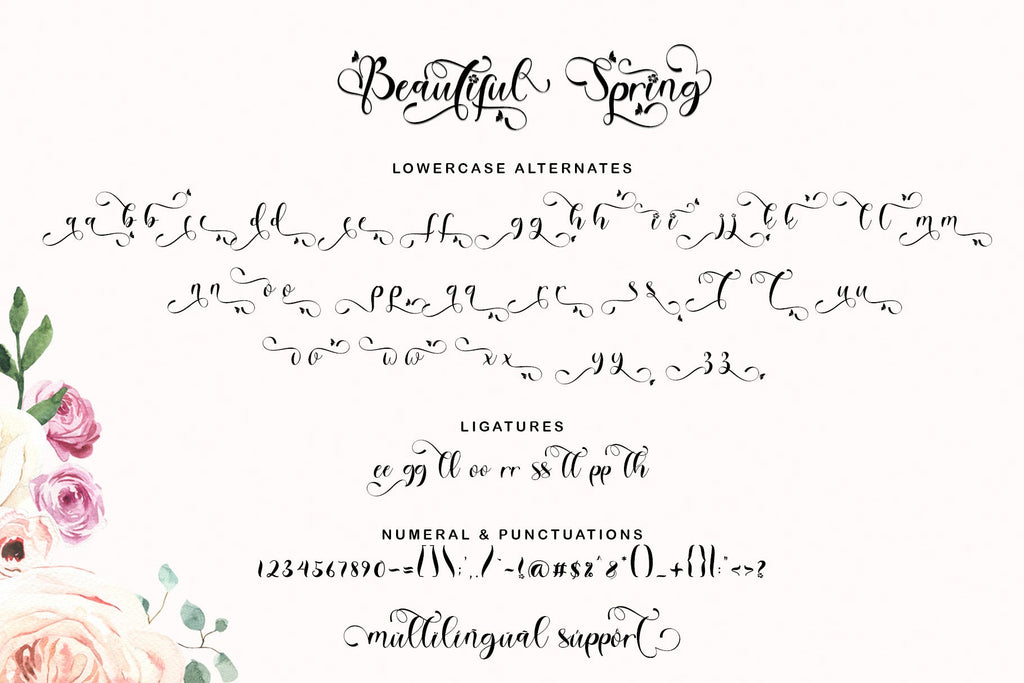 Beautiful Spring
LOWERCASE ALTERNATES
a a b b c c d d e e f f g g h h i i j j k k l l m m
n n o o p p q q r r s s t t u u
v v w w x x y y z z
LIGATURES
ee gg ll oo rr ss tt pp th
NUMERAL & PUNCTUATIONS
1234567890-=[]\;',./`~!@#$%^&*()_+{}|:"<>?
multilingual support